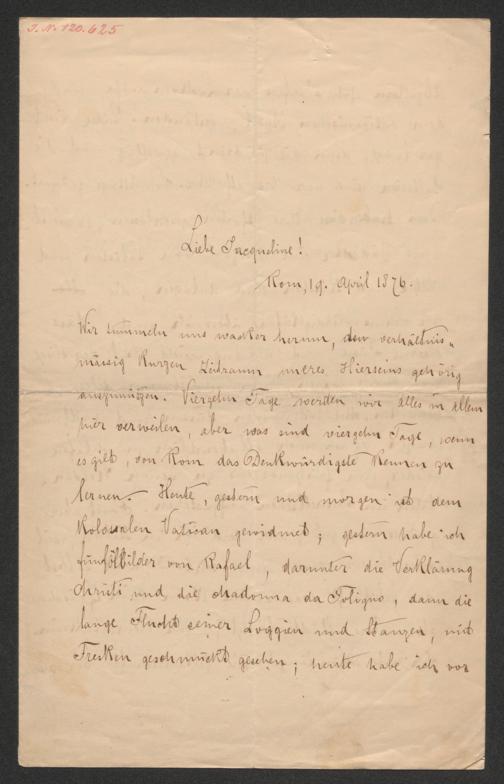 I.N. 120.625
Liebe Jacqueline!
Rom, 19. April 1876.
Wir tummeln uns wacker herum, den verhältnis-
mässig kurzen Zeitraum unseres Hierseins gehörig
auszunützen. Vierzehn Tage werden wir alles in allem
hier verweilen, aber was sind vierzehn Tage, wenn
es gilt, von Rom das Denkwürdigste kennen zu
lernen. – Heute, gestern und morgen ist dem
kolossalen Vatican gewidmet; gestern habe ich
fünf Ölbilder von Rafael, darunter die Verklärung
Christi und die Madonna da Foligno, dann die
lange Flucht seiner Loggien und Stanzen, mit
Fresken geschmückt gesehen; heute habe ich vor